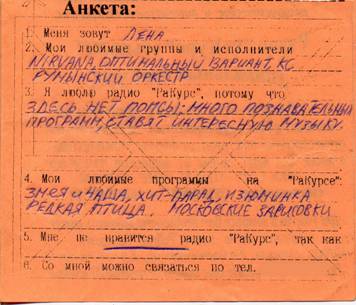 Анкета:
1. Меня зовут ЛЕНА
2. Мои любимые группы и исполнители
NIRVANA, ОПТИМАЛЬНЫЙ ВАРИАНТ, КС,
РУМЫНСКИЙ ОРКЕСТР
3. Я люлю радио "РаКурс", потому что
ЗДЕСЬ НЕТ ПОПСЫ; МНОГО ПОЗНАВАТЕЛЬНЫХ
ПРОГРАММ, СТАВЯТ ИНТЕРЕСНУЮ МУЗЫКУ.
4. Мои любимые программы на "РаКурсе":
ЗМЕЯ И ЧАША, ХИТ-ПАРАД, ИЗЮМИНКА
РЕДКАЯ ПТИЦА, МОСКОВСКИЕ ЗАРИСОВКИ
5. Мне не нравится радио "РаКурс", так как
6. Со мной можно связаться по тел.